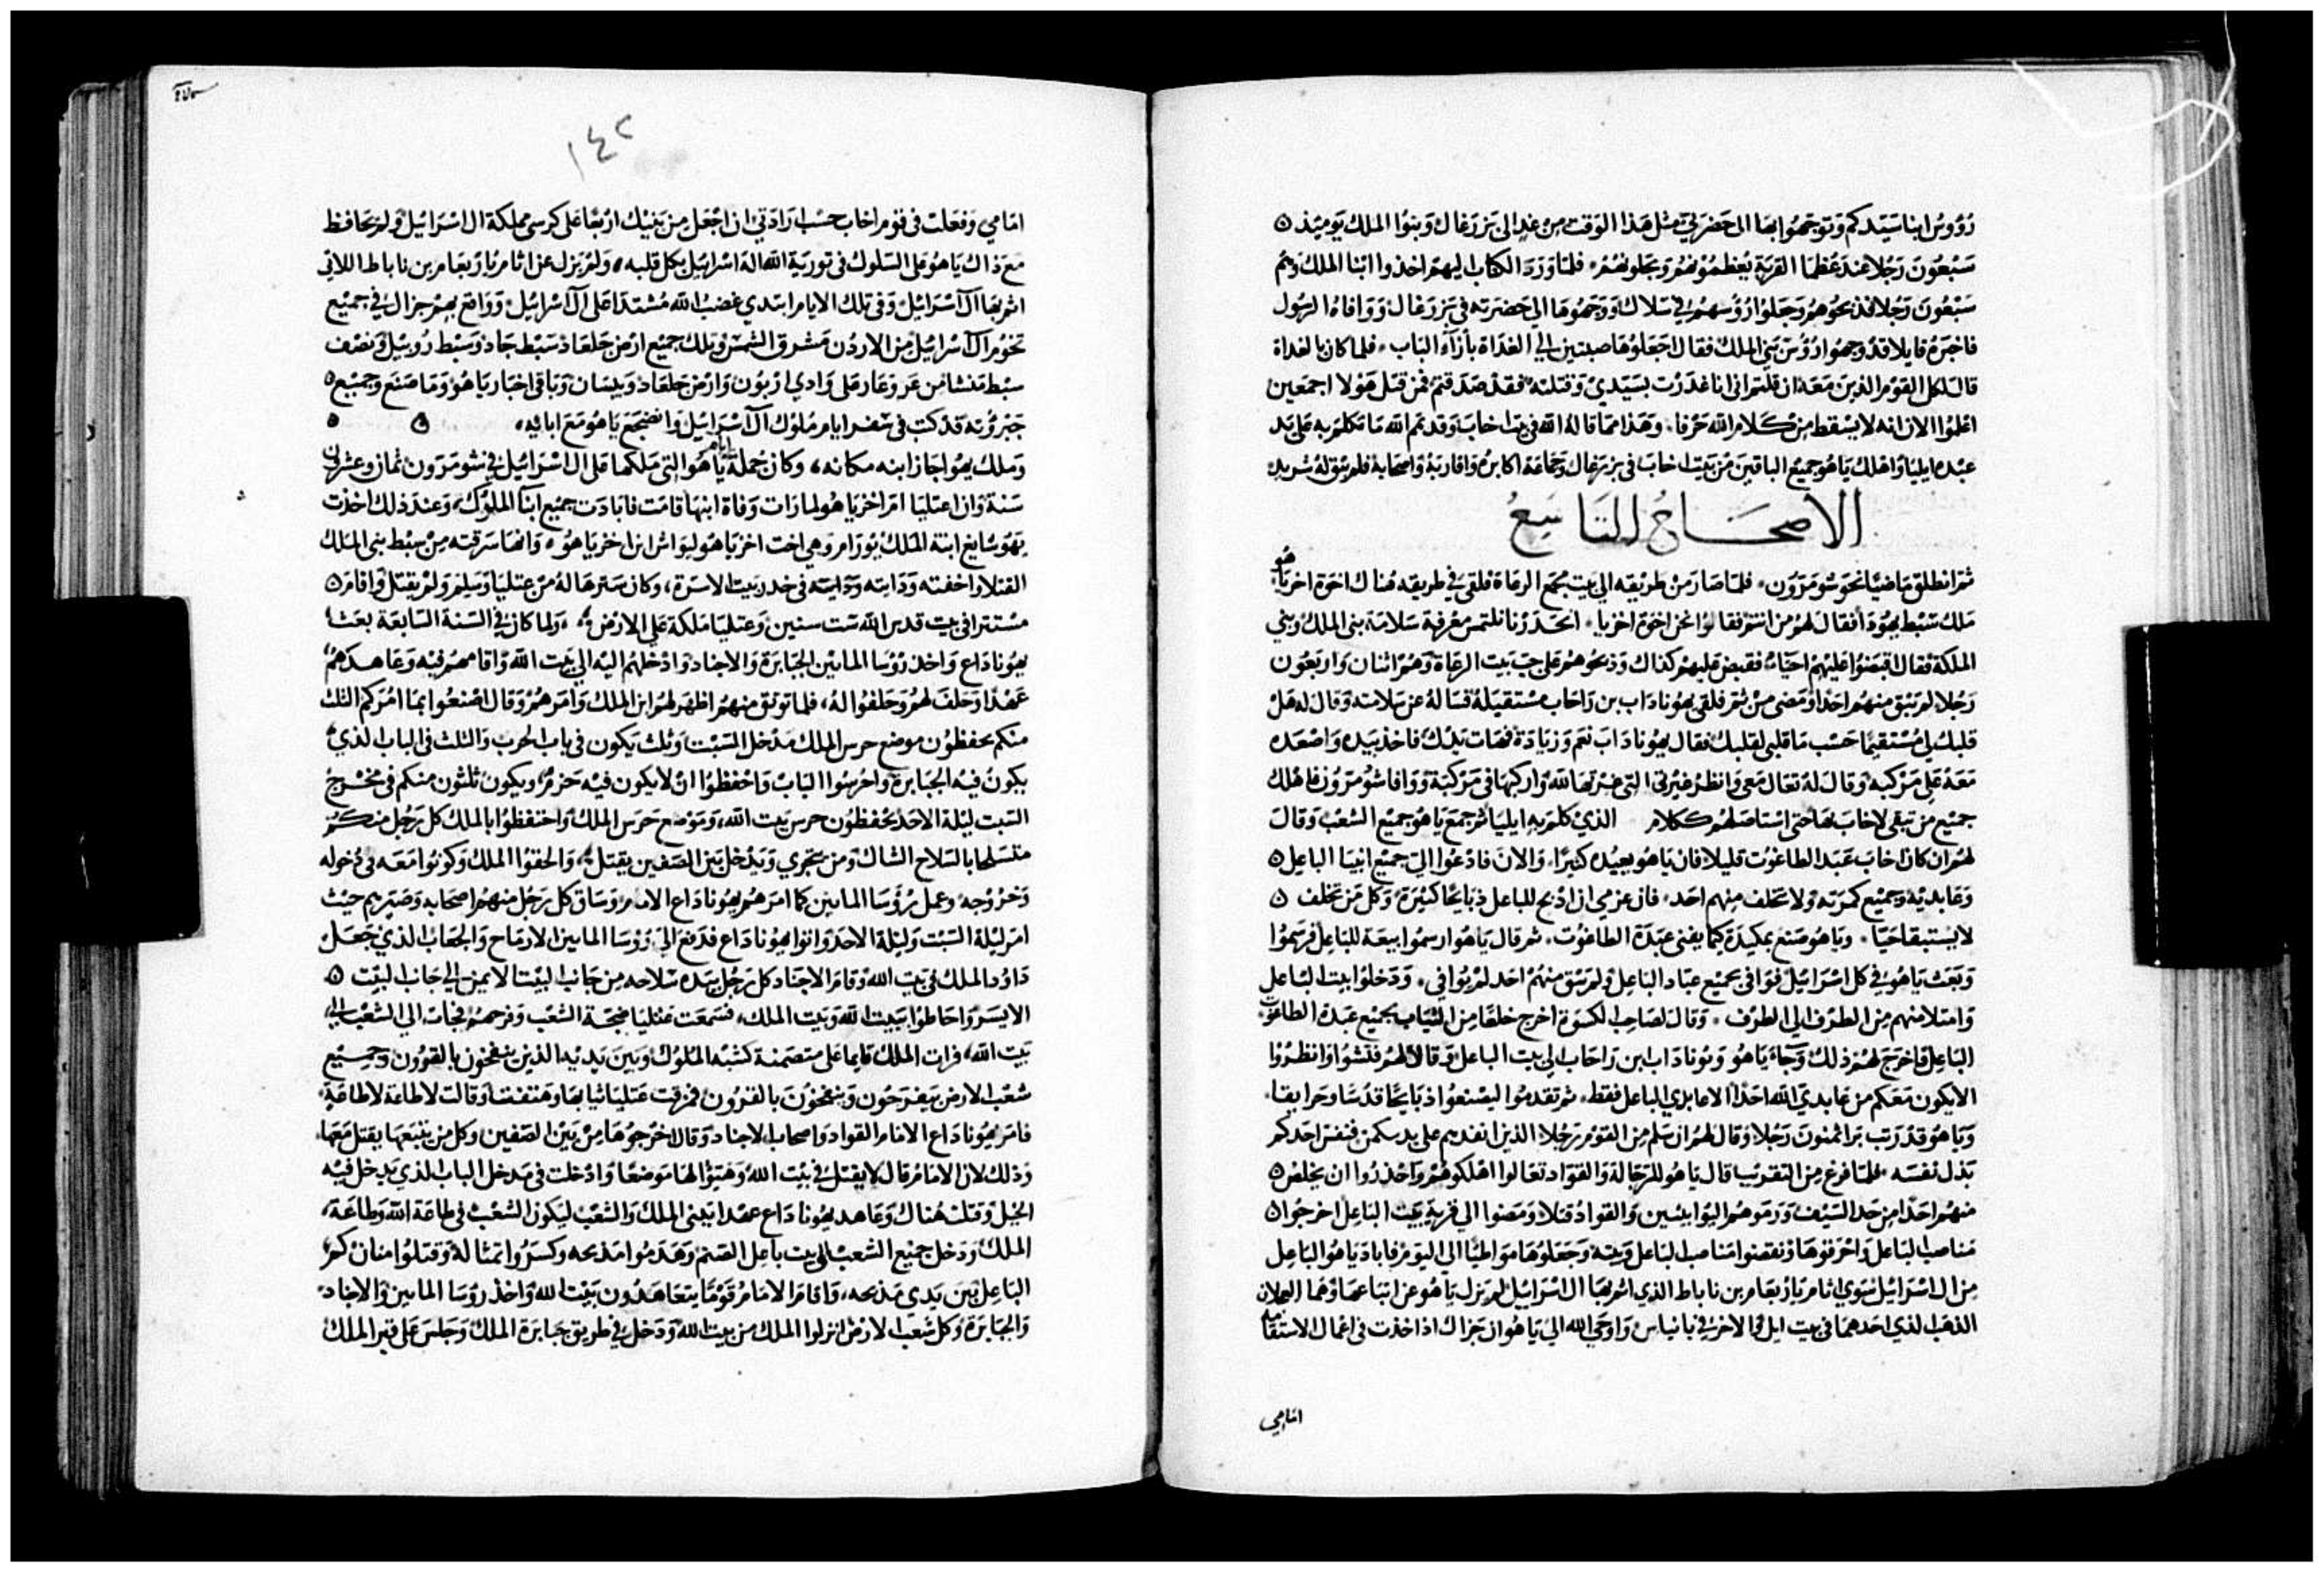 رُؤوسُ ابنا سَيّدكم وَتوجّهُوا بها الى حَضرَتي مثل هَذا الوَقت مِن غدٍ الى يَزرَغال وَبنوُا الملك يَوميئذ
سَبعُونَ رَجُلا عندَ عُظمَا القريَة يُعظمُونهُم وَيجلونهُم فلمّا وَرَدَ الكتاب اليهم اخذوا ابنا الملك وَهُم
سَبعُون رَجُلا فذبحُوهُم وَجَعلوُا رُؤسهُم في سلال وَوَجهُوهَا الي حَضرَته في يَزرَغال وَوَافاهُ الرسُول
فاخبَرهُ قايلا قدْ وجهوُا رُؤسَ بَني الملك فقال اجعَلوُهَا صبتين الى الغدَاة بأزآء البَاب فلما كان بالغداة
قال لكل القوم الذينَ مَعَهُ ان قلتم اني انا غدَرْت بسَيّدي وَقتلته فقد صَدَقتم فمن قتل هَولا اجمَعين
اعْلمُوا الان انه لا يسْقط مِنْ كلام الله حَرفا وَهَذا ممّا قالهُ الله في بيت اخاب وَقد تمم الله مَا تكلم به عَلى يَد
عبْده ايليا وَاهلك يَاهُو جميع الباقينَ مِنْ بَيْت اخابَ في يزرغال وَجمَاعَة اكابره وَاقاربَهُ وَاصحَابهُ فلم يبْق لهُ شريد
الاصحَاحُ التَاسِعُ
ثم انطلق مَاضيًا نحوَ شومَرَوَن فلمّا صَارَ من طريقه الي بيت مجمَع الرعَاة فلقى في طريقه هُناك اخوَة اخزيا هُو
مَلك سَبْط يهُوذا فقال لهُم من انتم فقالوُا نحن اخوَة اخزيا انحَدَرْنا نلتمس مَعْرفة سَلامَة بني الملك وَبني
الملكة فقال اقبضُوا عَليْهِمْ احيَاء فقبض عَليهم كذاك وَذبحُوهُمْ عَلى جبّ بَيت الرعَاة وَهُمْ اثنان وَاربَعُون
رَجُلا لم يَبْق منهُم احَدًا وَمَضى مِنْ ثم فلقى يهُوناداب بن رَاحَاب مسْتقبلهُ فسَالهُ عن سَلامته وَقال له هَلْ
قلبك لي مُسْتقيمًا حَسْب مَا قلبي لقلبك فقال يهُونادَابَ نعَم وَزيَادَة فهَات يَدَك فاخذ بيَده وَاصْعَده
مَعَهُ عَلى مَرْكبه وَقال لهُ تعَال مَعي وَانظر غيْرَتي التي غرْتهَا لله وَاركبهَا في مَرْكبَة وَوَافا شومَرَون فاهْلك
جميْع من تبقى لاخابَ بهَا حتى اسْتاصَلهُم ككلام الذي كلم به ايليَا ثم جمَعَ يَاهُو جميْع الشعْب وَقالَ
لهُم ان كانَ اخابَ عَبَد الطاغُوت قليلا فان يَاهُو يعبُدُه كثيرًا وَالانَ فادعُوا الىّ جميْع انبيَا الباعِل
وَعَابديْه وَجميْع كمرَته وَلا يتخلف منهم احَد فان عزمي ان اذبح للباعل ذبايحًا كثيرَة وَكل مَن تخلف
لا يستبقا حَيّا وَياهُو صَنع بمكيدَة كيما يفنى عَبَدَة الطاغوُت ثم قال يَاهُو ارسمُوا بيعَة للبَاعِل فرَسَموُا
وَبَعَث يَاهُو في كل اسْرَائيل فوَافى جميْع عبّاد البَاعِل وَلم يبْق منهُم احَد لم يُوافي وَدَخلوُا بيت البَاعل
وَامتلا منهم مِن الطرَف الي الطرَف وَقال لصَاحِب الكسوَة اخرج خلعًا من الثيَاب لجميْع عَبَدة الطاغوت
البَاعِل فاخرَجَ لهُم ذلك وَجَاءَ يَاهُو وَيُوناداب ابن رَاحَاب الي بيت الباعل وَقالا لهُم فتشوُا وَانظرُوُا
الا يكون مَعَكم من عَابديَ الله احَدًا الا عَابدي البَاعِل فقط ثم تقدموُا ليَصْنعُوا ذبايحًا قدسًا وحرايقا
وَيَاهُو قدْ رَتب بَرا ثمنونَ رَجُلا وَقال لهُم ان سَلم مِن القوم رَجُلا الذين انفذهم على يدكم فنفسْ احدكم
بَدل نفسَه فلمّا فرغ مِن التقريْب قال يَاهُو للرَجّالة وَالقوّاد تعَالوا اهْلكوُهُم وَاحْذرُوا ان يخلصْ
منهُم احَدًا مِن حَد السَيْف وَرَمَوهُم البَوابينْ وَالقوادُ قتلا وَمَضوا الي قريَة بَيْت البَاعِل اخرجُوا
مَناصبَ البَاعل وَاحْرَقوهَا وَنقضوا مَناصبَ البَاعل وَبيته وَجَعَلوُهَا مَوَاطيًا الي اليَوم فابادَ يَاهُو البَاعِل
مِن ال اسْرَائيل سوي اثام يَارُبْعَام بن ناباط الذي اثم بهَا ال اسْرَائيل لم يَزل يَاهُو عن اتبَاعهَا وَهمَا العجلان
الذهَب الذي احَدهمَا في بيت ايل وَالاخر في بانياس وَاوحَي الله اليَ يَاهُو ان جَزَاك اذ اخذت في اعْمال الاستقامة
امَامِي
١٤٢
امَامي وَفعَلتْ في قوم اخابَ حسْب ارَادَتي ان اجْعَل مِن بَنيْك ارْبعًا عَلى كرسي مملكة ال اسْرَائيل وَلم يحَافظ
مَع ذاك يَاهُو عَلى السّلوك في توريَة الله اله اسْرَائيل بكل قلبه وَلم يَزل عن اثام يَارُبعَام بن ناباط اللاتي
اثم بهَا ال اسْرَائيل وَفي تلك الايام ابتَدي غضبُ الله مُشتدًا عَلى ال اسْرَائيل وَوَاقع بهم حزال في جميْع
تخوُم ال اسْرَائيل مِن الاردُن مَشرق الشمسْ وَتلك جميْع ارْض جَلعَاد سَبْط جَاد وَسَبْط رُوبيْل وَنصْف
سبْط مَنشا من عَروعَار عَلى وَادي اربُون وَارْض جَلعَاد وَبيسَان وَبَاقي اخبَار يَاهُو وَمَا صَنع وَجميْع
جَبرُوته قدْ كتب في سفر ايام مُلوُك ال اسْرَائيل وَانضجَع يَاهُو مَعَ ابائه
وَملك يهُواجَاز ابنه مكانه وَكان جملة ايام يَاهُو التي مَلكهَا عَلى ال اسْرَائيل في شومَرَون ثمان وعشرين
سَنة وَان اعتليَا ام اخزيَاهُو لما رَات وَفاة ابنهَا قامَت فابادَت جميْع ابنا الملوُك وَعندَ ذلك اخذت
يهُوشابع ابنة الملك يُورَام وَهي اخت اخزيَاهُو ليوَاش ابن اخزيَاهُو وَانهَا سَرقته مِنْ سِبْط بني الملك
القتلا وَاخفته وَدَايته في خدر بَيت الاسرَة وَكان سَترهَا لهُ مِن عتليَا وَسَلم وَلمْ يقتل وَاقامَ
مسْتترا في بيت قدس الله ست سنين وَعتليَا مَلكة عَلى الارْض وَلما كان في السَنة السَابعَة بعَث
يهُونادَاع وَاخذ رُؤسَا المايتين الجبَابرَة وَالاجناد وَادْخلهُم اليْه الي بَيت الله وَاقامهُم فيْه وَعَاهَدهُمْ
عَهْدًا وَحَلف لهُم وَحَلفوُا لهُ فلما توثق منهُم اظهَرَ لهُم ابن الملك وَامرَهُمْ وَقال اصْنعُوا بمَا امُرَكم الثلث
منكم يحفظوُن موضع حرس الملك مَدْخل السَبْت وَثلث يكون في باب الحرب وَالثلث في الباب الذي
يكونُ فيْه الجبَابرَة وَاحْرسُوا البَابْ وَاحْفظوُا انْ لا يكون فيْه حَزمٌ وَيكونُ ثلثون منكم في مَخْرج
السَبت ليْلة الاحَد يحْفظوُن حرس بَيت الله وَمَوْضع حَرَس الملك وَاحْتفظوُا بالملك كل رَجُل منكم
متسَلحا بالسّلاح الشاك وَمن يتجَري وَيَدْخل بَيْن الصَفين يقتل وَالحقوُا الملك وَكونُوا مَعَه في دُخوله
وَخرُوْجه وَعمل رُؤسَا المايتين كما امَرَهُم يهُونادَاع الامَام وَسَاق كل رَجُل منهُم اصحَابه وَصَيّرهم حيْث
امر ليْلة السَبْت وَليْلة الاحَد وَاتوا يهُونادَاع فدَفع اليَ رُؤسَا المايتين الارمَاح وَالجعَابْ الذي جَعَلَ
دَاوُد الملك في بَيت الله وَقامَ الاجنَاد كل رَجُل بيَده سَلاحه مِن جَانبْ البيْت الايمن الي جَانب البيْت
الايسَر وَاحَاطوُا ببَيْت الله وَبيت الملك فسَمعَت عَتليَا ضجّة الشعْب وَفرحهُم فجَات الي الشعْب الي
بَيت الله فرات الملك قايما عَلى متصمنة كشبْه الملوُك وَبينَ يَديْه الذين ينفخون بالقرُون وَجميْع
شعْب الارض يَفرَحُون وَينفخُونَ بالقرُون فمزقت عَتليَا ثيابهَا وَهتفت وَقالت لاطاعَة لاطاعَة
فامرَ يهُونادَاع الامَام القواد وَاصحاب الاجناد وَقال اخرجُوهَا مِنْ بَيْن الصَفين وَكل من يتبَعهَا يقتل مَعَهَا
وَذلك لان الامَام قال لا يقتل في بيْت الله وَهَيّوُا لهَا مَوضعًا وَادْخلت في مَدخل الباب الذي يَدخل فيْه
الخيل وَقتلت هُناك وَعَاهد يهُونادَاع عهْدا بَيني الملك وَالشعْبْ ليَكون الشعْبْ في طاعَة الله وَطاعَة
الملك وَدَخل جميْع الشعْب الي بيت باعِل الصَنم وَهَدَموُا مَذبحه وكسَرُوا تمثاله وَقتلوُا منان كمر
البَاعِل بَيْن يَدي مَذبحه وَاقامَ الامَامُ قوْمًا يتعَاهَدُون بَيْت الله وَاخذ رُؤسَا المايتين وَالاجناد
وَالجبَابرَة وَكل شعْب الارْض انزلوا الملك من بيت الله وَدَخل في طريق جبَابرَة الملك وَجَلسَ عَلى منبر الملك